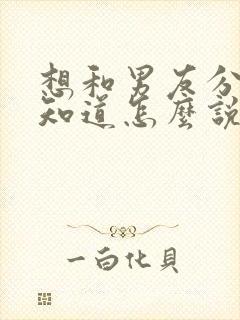 想和男友分
知道怎麼說
一白化貝